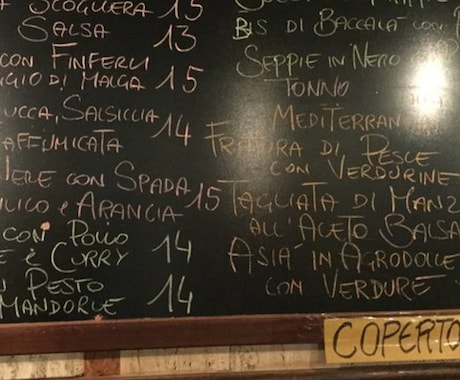 SCOGLIERA 15
SALSA 13
CON FINFERLI
GGIO DI MALGA 15
UCCA, SALSICCIA
AFFUMICATA 14
NERE CON SPADA
ILICO E ARANCIA 15
CON POLLO
E E CURRY 14
PESTO
MANDORLE 14
BIS DI BACCALÀ CON
SEPPIE IN NERO
TONNO
MEDITERRAN
FRITTURA DI PESCE
CON VERDURINE
TAGLIATA DI MANZ
ALL'ACETO BALSA
ASIÀ IN AGRODOLCE
CON VERDURE
COPERTO